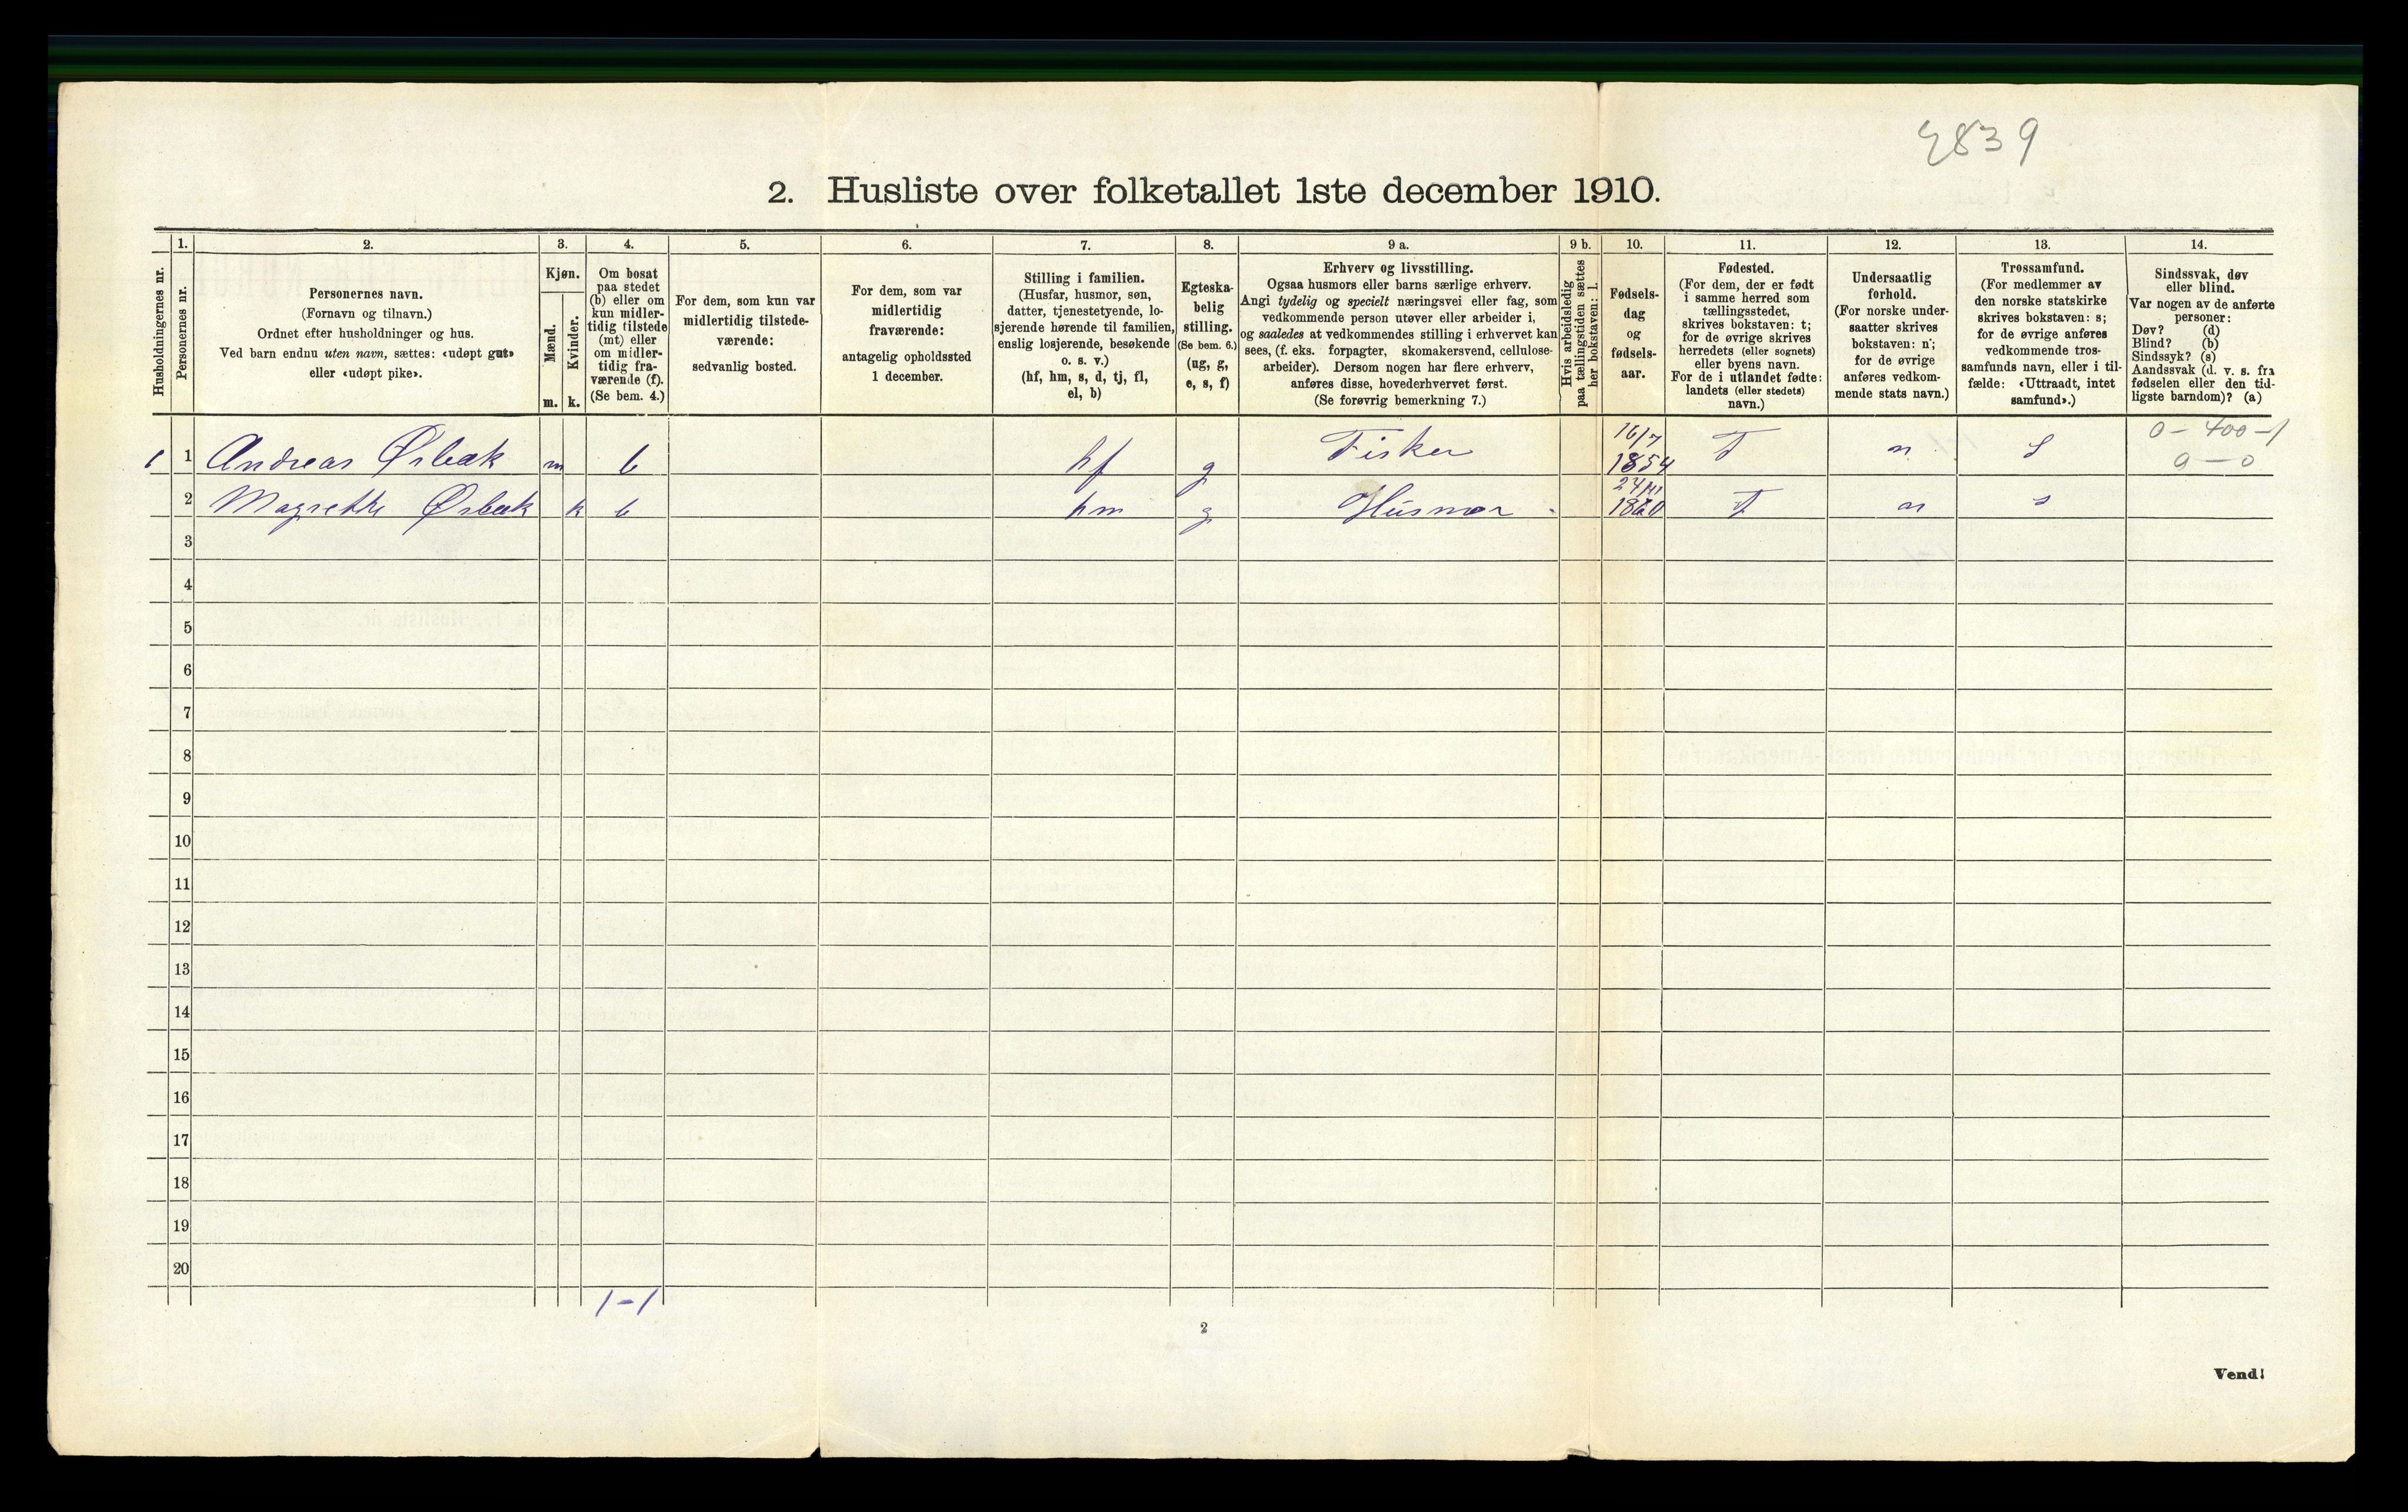 4839
2. Husliste over folketallet 1ste december 1910.
Husholdningernes nr.
1.
Personernes nr.
2.
Personernes navn.
(Fornavn og tilnavn.)
Ordnet efter husholdninger og hus.
Ved barn endnu uten navn, sættes: «udøpt gut»
eller «udøpt pike».
3.
Kjøn.
Mænd.
Kvinder.
m. k.
4.
Om bosat
paa stedet
(b) eller om
kun midler-
tidig tilstede
(mt) eller
om midler-
tidig fra-
værende (f).
(Se bem. 4.)
5.
For dem, som kun var
midlertidig tilstede-
værende:
sedvanlig bosted.
6.
For dem, som var
midlertidig
fraværende:
antagelig opholdssted
1 december.
7.
Stilling i familien.
(Husfar, husmor, søn,
datter, tjenestetyende, lo-
sjerende hørende til familien,
enslig losjerende, besøkende
o. s. v.)
(hf, hm, s, d, tj, fl,
el, b)
8.
Egteska-
belig
stilling.
(Se bem. 6.)
(ug, g,
e, s, f)
9 a.
Erhverv og livsstilling.
Ogsaa husmors eller barns særlige erhverv.
Angi tydelig og specielt næringsvei eller fag, som
vedkommende person utøver eller arbeider i,
og saaledes at vedkommendes stilling i erhvervet kan
sees, (f. eks. forpagter, skomakersvend, cellulose-
arbeider). Dersom nogen har flere erhverv,
anføres disse, hovederhvervet først.
(Se forøvrig bemerkning 7.)
9 b.
Hvis arbeidsledig
paa tællingstiden sættes
her bokstaven: l.
10.
Fødsels-
dag
og
fødsels-
aar.
11.
Fødested.
(For dem, der er født
i samme herred som
tællingsstedet,
skrives bokstaven: t;
for de øvrige skrives
herredets (eller sognets)
eller byens navn.
For de i utlandet fødte:
landets (eller stedets)
navn.)
12.
Undersaatlig
forhold.
(For norske under-
saatter skrives
bokstaven: n;
for de øvrige
anføres vedkom-
mende stats navn.)
13.
Trossamfund.
(For medlemmer av
den norske statskirke
skrives bokstaven: s;
for de øvrige anføres
vedkommende tros-
samfunds navn, eller i til-
fælde: «Uttraadt, intet
samfund».)
14.
Sindssvak, døv
eller blind.
Var nogen av de anførte
personer:
Døv? (d)
Blind? (b)
Sindssyk? (s)
Aandssvak (d. v. s. fra
fødselen eller den tid-
ligste barndom)? (a)
1 1 Andreas Ørbæk m b hf g Fisker 16/7 1854 T n s 0 - 400 - 1
0 - 0
2 Magrethe Ørbæk k b hm g Husmor 1860 T n s
3
4
5
6
7
8
9
10
11
12
13
14
15
16
17
18
19
20
1 - 1
2
Vend!